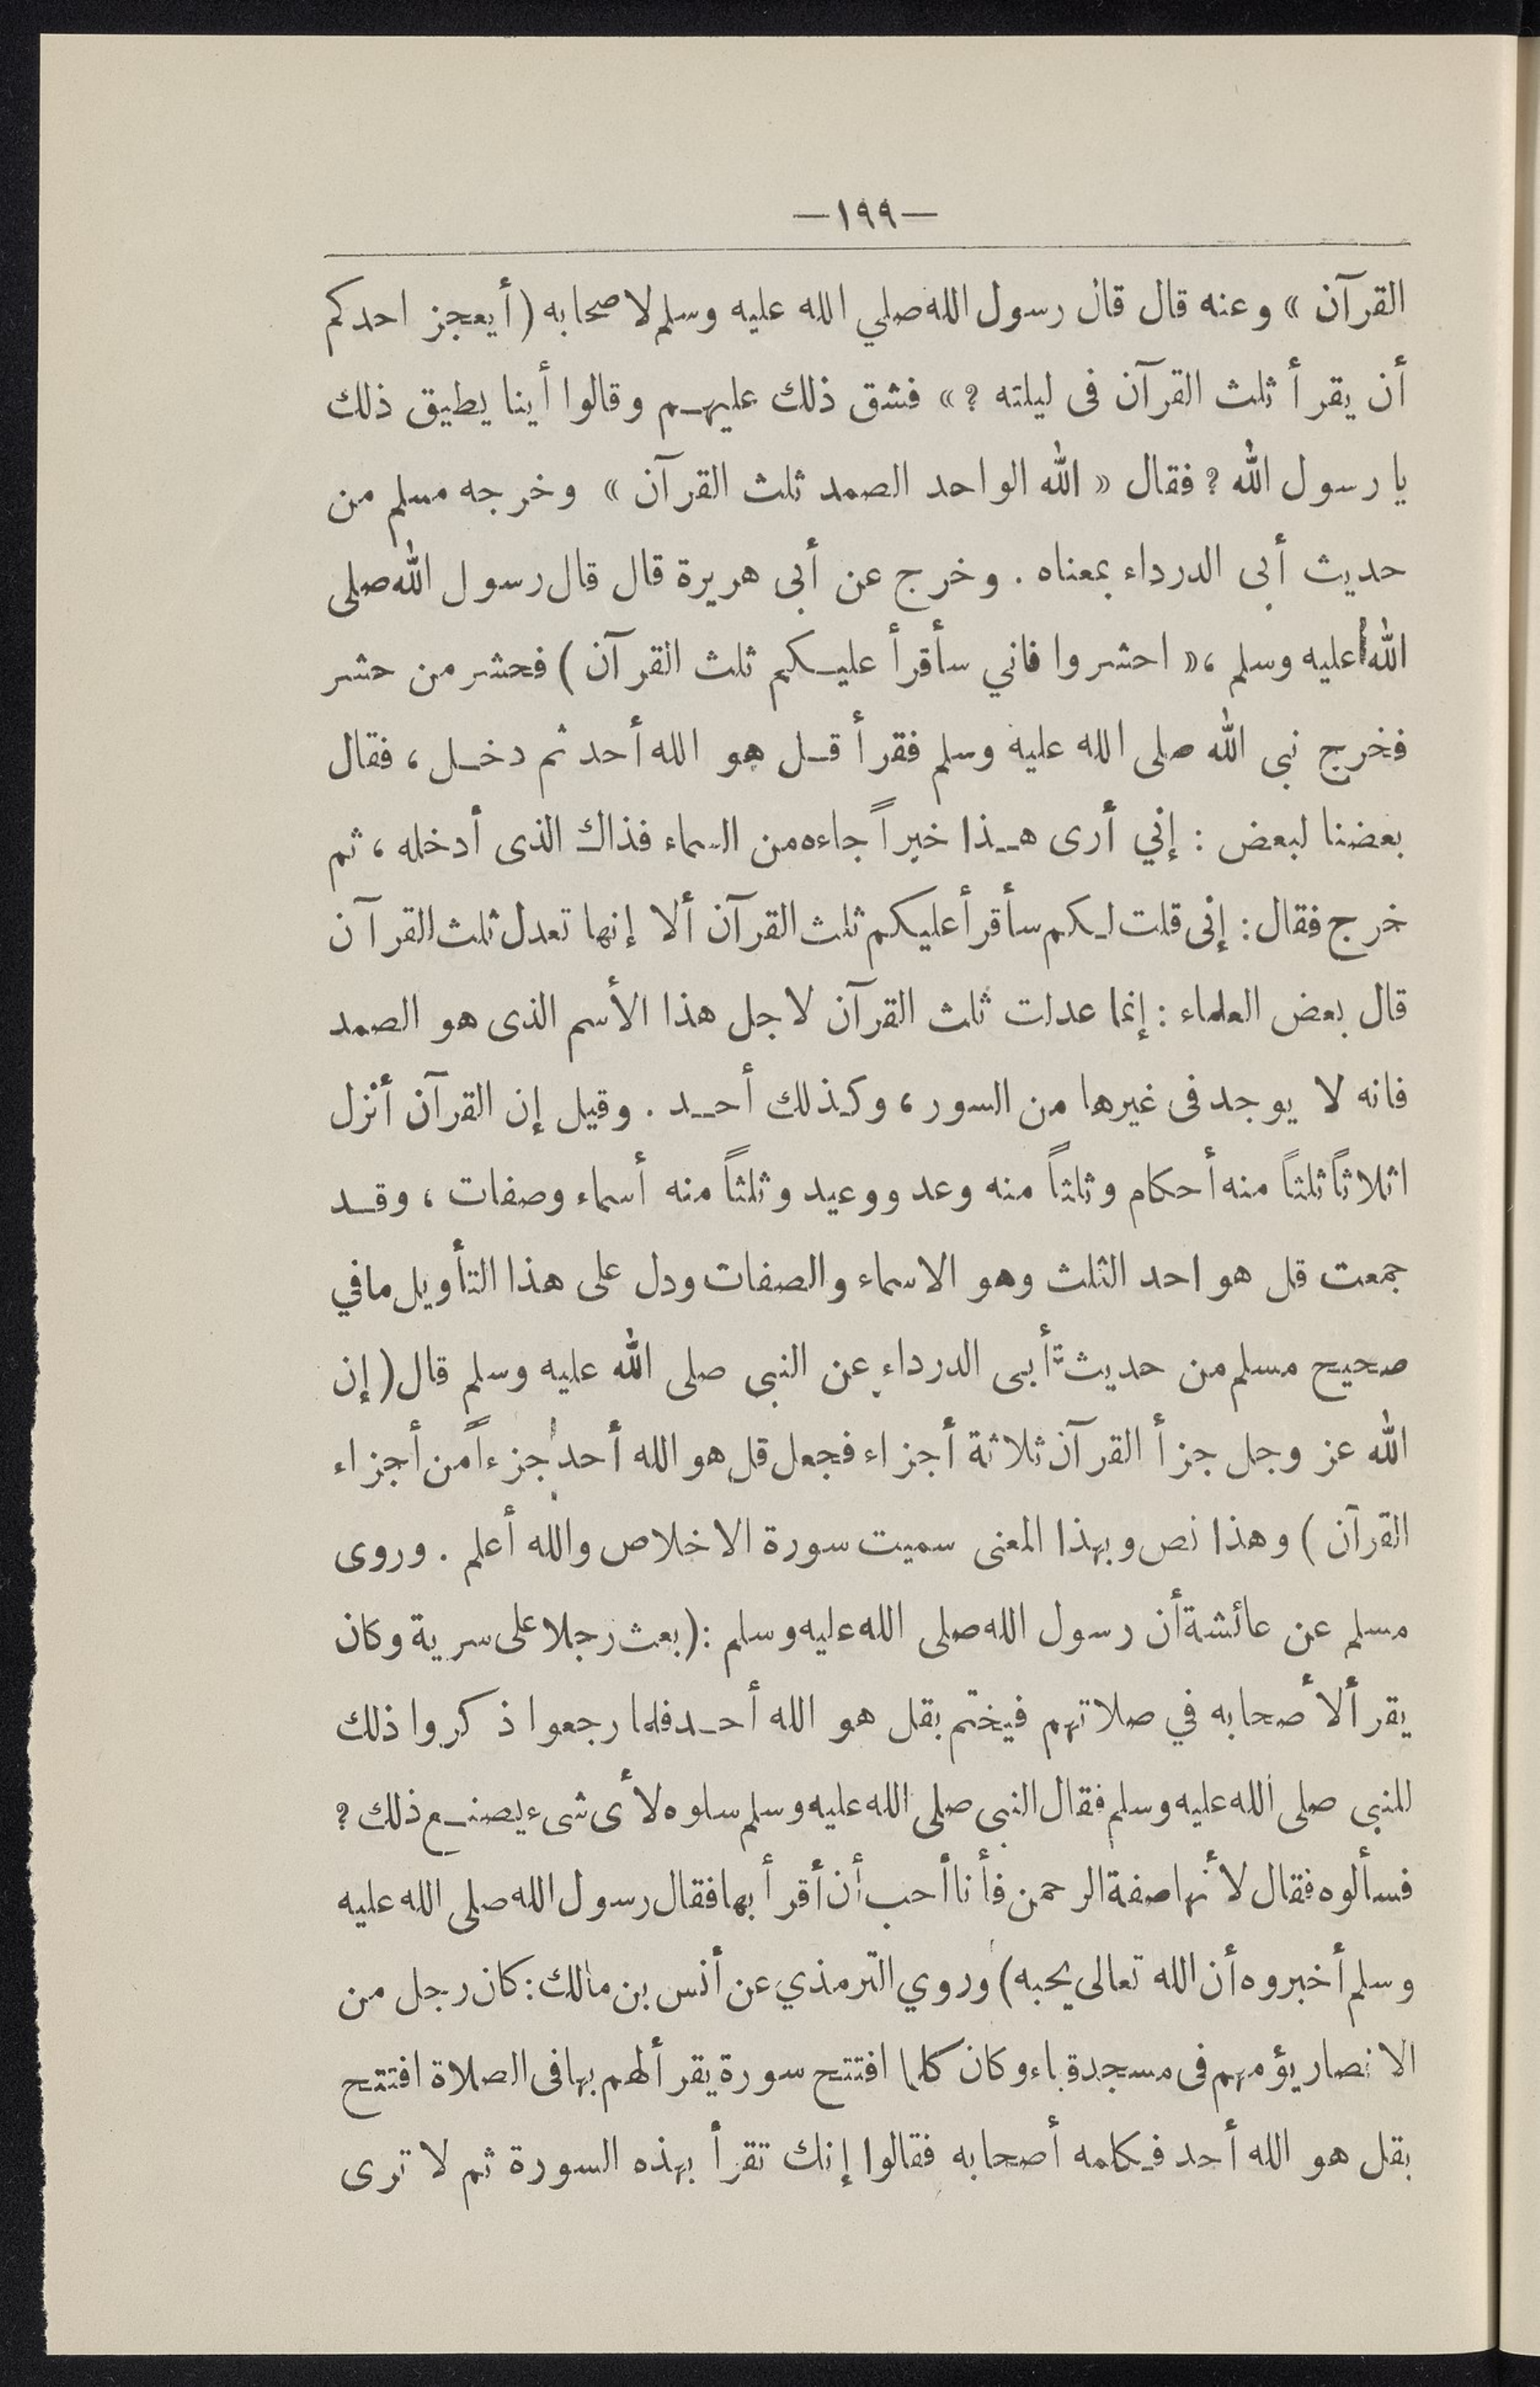 —١٩٩—
القرآن » وعنه قال قال رسول الله صلي الله عليه وسلم لاصحابه (أيعجز احدكم
أن يقرأ ثلث القرآن فى ليلته ؟ » فشق ذلك عليهم وقالوا أينا يطيق ذلك
يا رسول الله ؟ فقال « الله الواحد الصمد ثلث القرآن » وخرجه مسلم من
حديث أبى الدرداء بمعناه . وخرج عن أبى هريرة قال قال رسول الله صلى
الله عليه وسلم ، « احشروا فاني سأقرأ عليكم ثلث القرآن ) فحشر من حشر
فخرج نبى الله صلى الله عليه وسلم فقرأ قل هو الله أحد ثم دخل ، فقال
بعضنا لبعض : إني أرى هذا خبراً جاءه من السماء فذاك الذى أدخله ، ثم
خرج فقال : إنى قلت لكم سأقرأ عليكم ثلث القرآن ألا إنها تعدل ثلث القرآن
قال بعض العلماء : إنما عدلت ثلث القرآن لاجل هذا الأسم الذى هو الصمد
فانه لا يوجد فى غيرها من السور ، وكذلك أحد . وقيل إن القرآن أنزل
اثلاثاً ثلثاً منه أحكام وثلثاً منه وعد ووعيد وثلثاً منه أسماء وصفات ، وقد
جمعت قل هو احد الثلث وهو الاسماء والصفات ودل على هذا التأويل مافي
صحيح مسلم من حديث أبى الدرداء عن النبى صلى الله عليه وسلم قال ( إن
الله عز وجل جزأ القرآن ثلاثة أجزاء فجعل قل هو الله أحد جزءاً من أجزاء
القرآن ) وهذا نص وبهذا المعنى سميت سورة الاخلاص والله أعلم . وروى
مسلم عن عائشة أن رسول الله صلى الله عليه وسلم : ( بعث رجلا على سرية وكان
يقرأ لأصحابه في صلاتهم فيختم بقل هو الله أحد فلما رجعوا ذكروا ذلك
للنبى صلى الله عليه وسلم فقال النبى صلى الله عليه وسلم سلوه لأى شىء يصنع ذلك ؟
فسألوه فقال لأنها صفة الرحمن فأنا أحب أن أقرأ بها فقال رسول الله صلى الله عليه
وسلم أخبروه أن الله تعالى يحبه ) وروي الترمذي عن أنس بن مالك : كان رجل من
الانصار يؤمهم فى مسجد قباء وكان كلما افتتح سورة يقرأ لهم بها فى الصلاة افتتح
بقل هو الله أحد فكلمه أصحابه فقالوا إنك تقرأ بهذه السورة ثم لا ترى